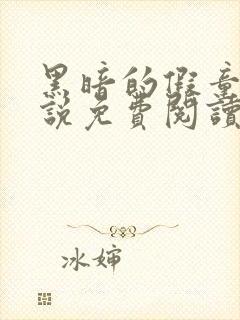 黑暗的假童
説免費閱讀
冰婶